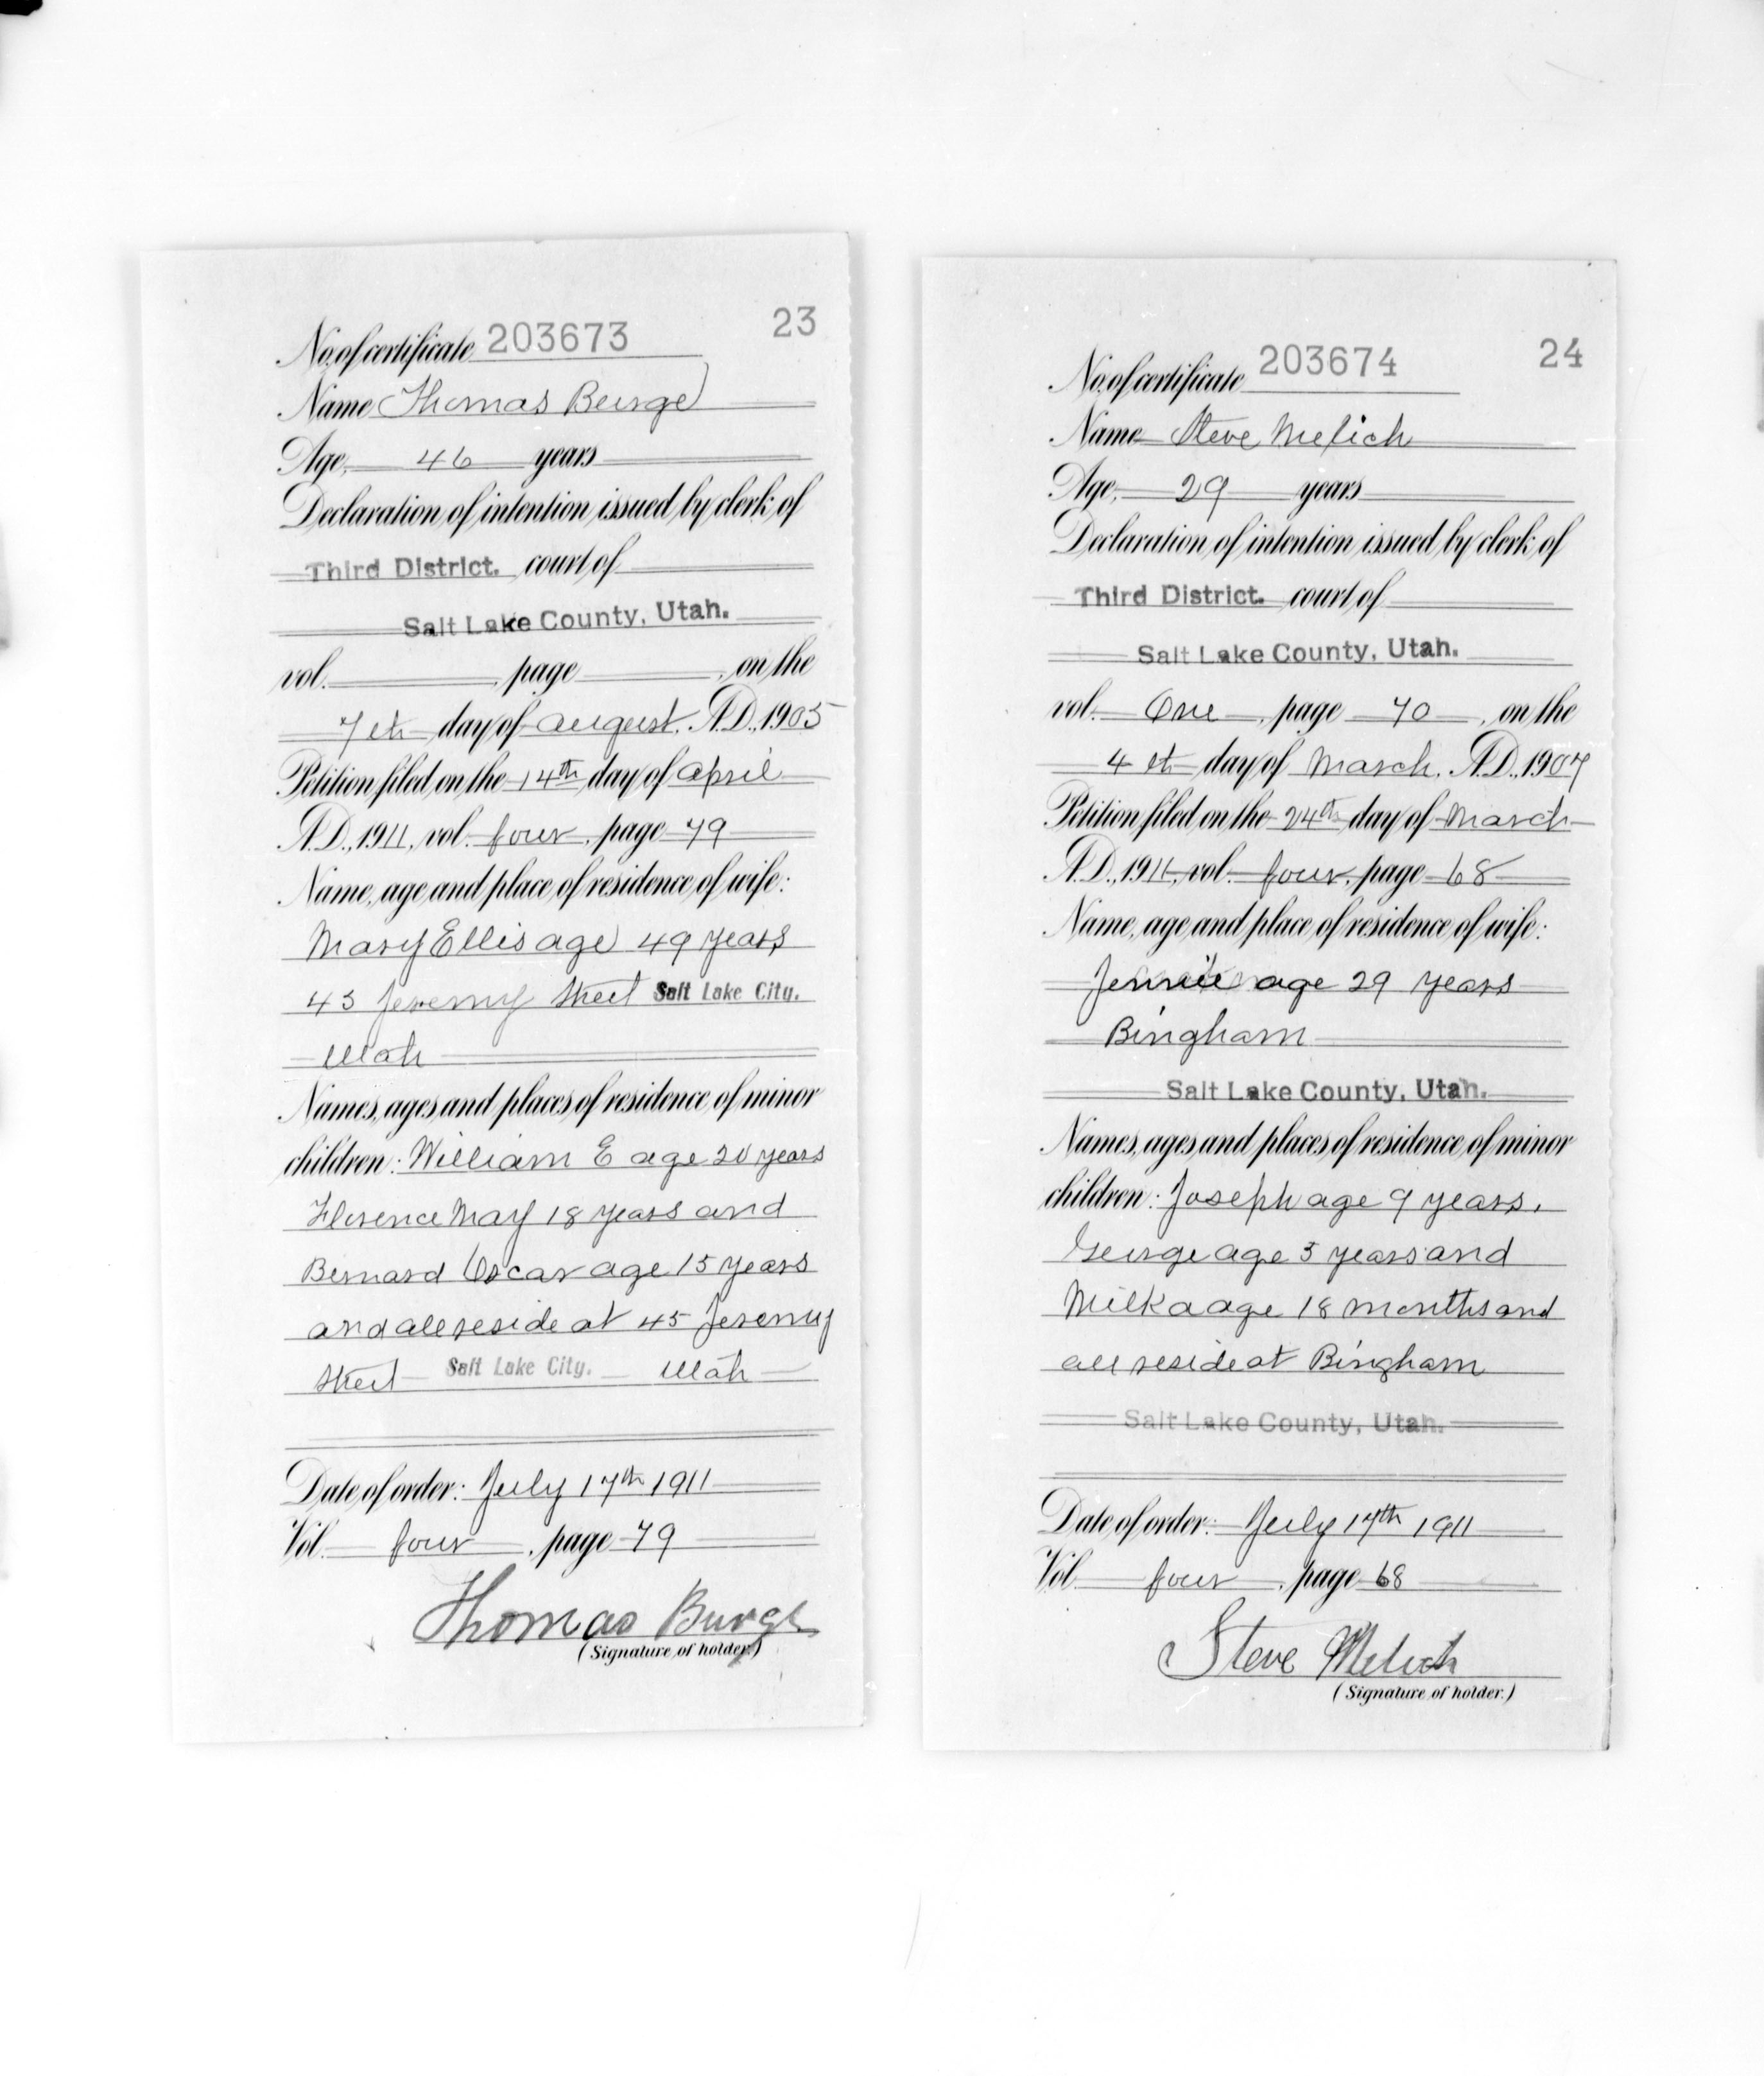 No. of certificate 203673 23
Name Thomas Burge
Age, 46 years
Declaration of intention issued by clerk of
Third District. court of
Salt Lake County, Utah.
vol. , page , on the
7th day of august, A.D., 1905
Petition filed on the 14th day of april
A.D., 1911, vol. four, page 79
Name, age and place of residence of wife:
Mary Ellis age 49 years
45 Jeremy Street Salt Lake City.
Utah
Names, ages and places of residence of minor
children: William E age 20 years
Florence May 18 years and
Bernard Oscar age 15 years
and all reside at 45 Jeremy
Street Salt Lake City. Utah
Date of order: July 17th 1911
Vol. four, page 79
Thomas Burge
(Signature of holder.)
No. of certificate 203674 24
Name Steve Melich
Age, 29 years
Declaration of intention issued by clerk of
Third District. court of
Salt Lake County, Utah.
vol. One, page 70, on the
4th day of March, A.D., 1907
Petition filed on the 24th day of March
A.D., 1911, vol. four, page 68
Name, age and place of residence of wife:
Jennie age 29 years
Bingham
Salt Lake County, Utah.
Names, ages and places of residence of minor
children: Joseph age 9 years,
George age 5 years and
Milka age 18 months and
all reside at Bingham
Salt Lake County, Utah.
Date of order: July 17th 1911
Vol. four, page 68
Steve Melich
(Signature of holder.)